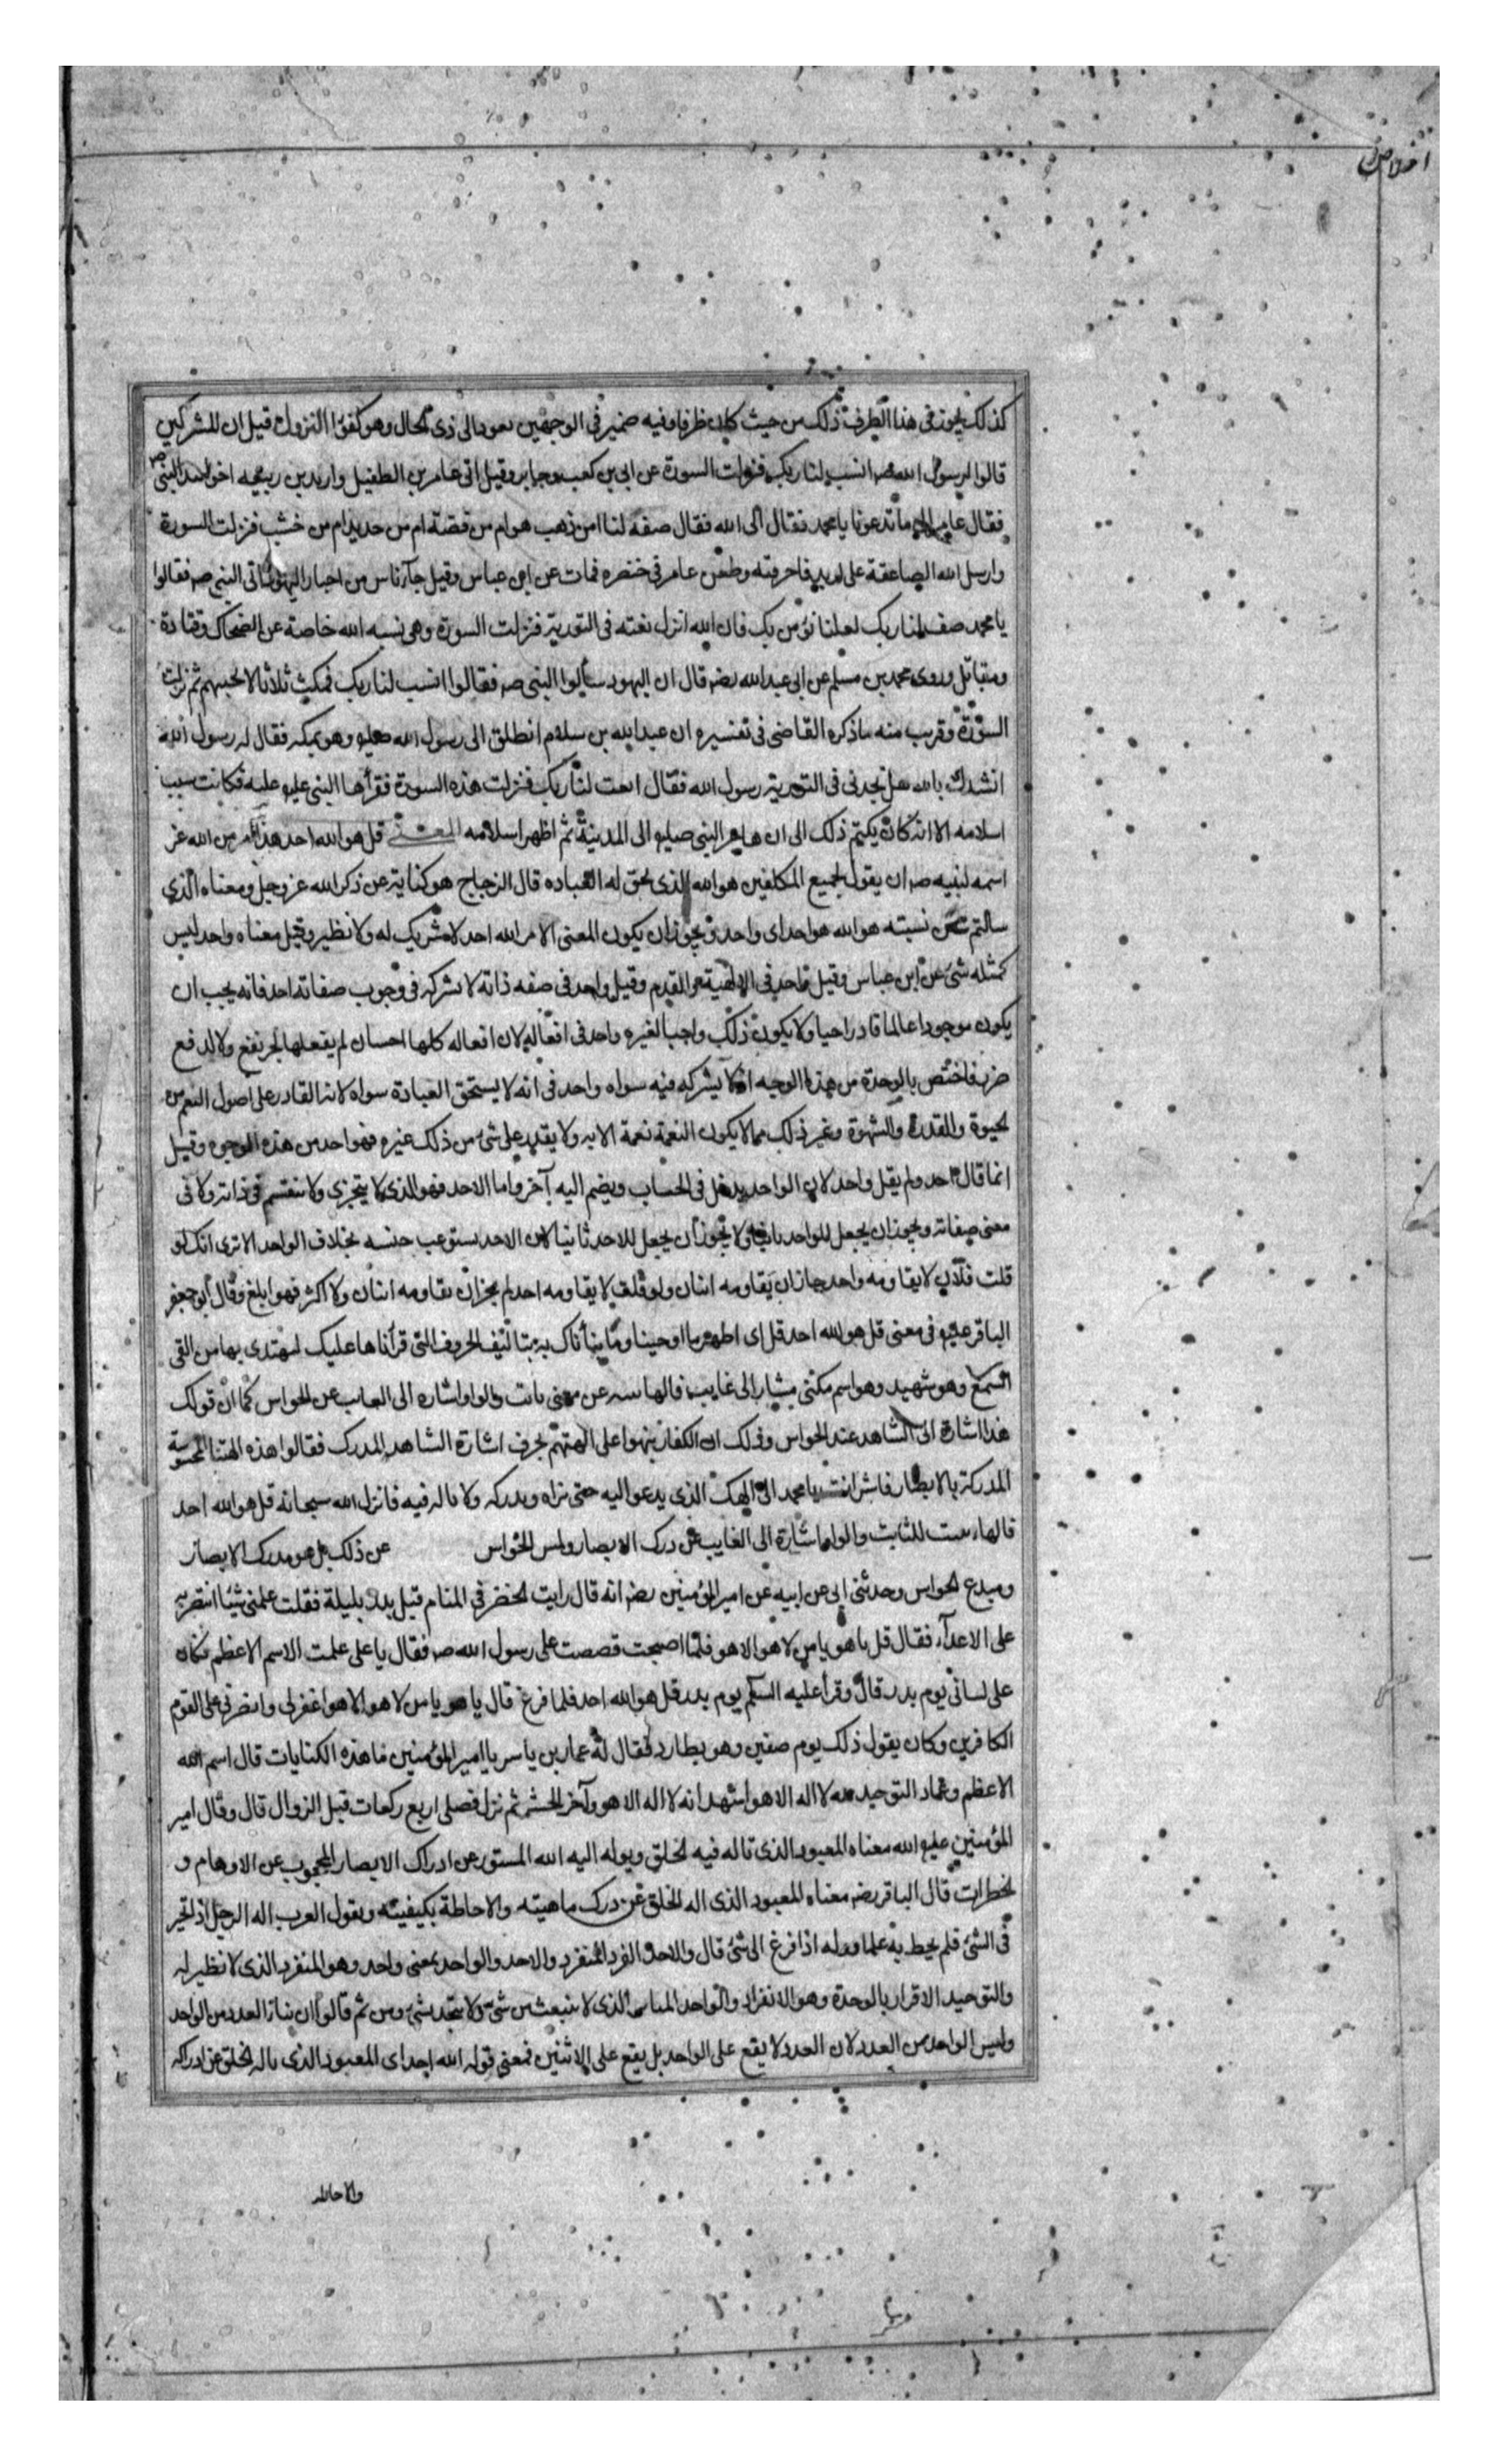 اخلاص
كذلك يجوز فى هذا الظرف ذلك من حيث كان ظرفا وفيه ضمير فى الوجهين يعود الى ذى الحال وهو كفوا النزول قيل ان المشركين
قالوا لرسول الله صم انسب لنا ربك فنزلت السورة عن ابى بن كعب وجابر وقيل اتى عامر بن الطفيل واربد بن ربيعه اخو لبيد النبى صم
فقال عامر الى ما تدعونا يا محمد فقال الى الله فقال صفه لنا امن ذهب هو ام من فضة ام من حديد ام من خشب فنزلت السورة
وارسل الله الصاعقة على اربد فاحرقته وطعن عامر فى خنصره فمات عن ابن عباس وقيل جآء ناس من احبار اليهود الى النبى صم فقالوا
يا محمد صف لنا ربك لعلنا نؤمن بك فان الله انزل نعته فى التورية فنزلت السورة وهى نسبه الله خاصة عن الضحاك وقتادة
ومقاتل وروى محمد بن مسلم عن ابى عبد الله رضه قال ان اليهود سألوا النبى صم فقالوا انسب لنا ربك فمكث ثلاثا لا يجيبهم ثم نزلت
السورة وقريب منه ما ذكره القاضى فى تفسيره ان عبد الله بن سلام انطلق الى رسول الله صليو وهو بمكه فقال له رسول الله
انشدك بالله هل تجدنى فى التورية رسول الله فقال انعت لنا ربك فنزلت هذه السورة فقرأها النبى عليو عليه فكانت سبب
اسلامه الا انه كان يكتم ذلك الى ان هاجر النبى صليو الى المدينة ثم اظهر اسلامه المعنى قل هو الله احد هذا امر من الله عز
اسمه لنبيه صم ان يقول لجميع المكلفين هو الله الذى يحق له العباده قال الزجاج هو كناية عن ذكر الله عز وجل ومعناه الذي
سالتم عن نسبته هو الله هو احد اى واحد ويجوز ان يكون المعنى الامر الله احد لا شريك له ولا نظير وقيل معناه واحد ليس
كمثله شئ عن ابن عباس وقيل واحد فى الالهية والقدم وقيل واحد فى صفه ذاته لا يشركه فى وجوب صفاته احد فانه يجب ان
يكون موجودا عالما قادرا حيا ولا يكون ذلك واجبا لغيره واحد فى افعاله لان افعاله كلها احسان لم يفعلها لجر نفع ولا لدفع
ضر فاختص بالوحدة من هذا الوجه اذ لا يشركه فيه سواه واحد فى انه لا يستحق العبادة سواه لانه القادر على اصول النعم من
الحيوة والقدرة والشهوة وغير ذلك مما لا يكون النعمة نعمة الا به ولا يقدر على شئ من ذلك غيره فهو احد من هذه الوجوه وقيل
انما قال احد ولم يقل واحد لان الواحد يدخل فى الحساب ويضم اليه آخر واما الاحد فهو الذى لا يتجزى ولا ينقسم فى ذاته ولا فى
معنى صفاته ويجوز ان يجعل للواحد ثانيا ولا يجوز ان يجعل للاحد ثانيا لان الاحد يستوعب جنسه بخلاف الواحد الا ترى انك لو
قلت فلان لا يقاومه واحد جاز ان يقاومه اثنان ولو قلت لا يقاومه احد لم يجز ان يقاومه اثنان ولا اكثر فهو ابلغ وقال ابو جعفر
الباقر عليو فى معنى قل هو الله احد قل اى اظهر ما اوحينا وما ينبأناك به بتاليف الحروف التى قرأناها عليك ليهتدى بها من القى
السمع وهو شهيد وهو اسم مكنى مشار الى غايب فالها تنبيه عن معنى ثابت والواو اشاره الى الغايب عن الحواس كما ان قولك
هذا اشارة الى الشاهد عند الحواس وذلك ان الكفار نبهوا على الهتهم بحرف اشارة الشاهد المدرك فقالوا هذه الهتنا المحسوسة
المدركة بالابصار فاشر انت يا محمد الى الهك الذى يدعو اليه حتى نراه وندركه ولا ناله فيه فانزل الله سبحانه قل هو الله احد
فالهاء تثبيت للثابت والواو اشارة الى الغايب عن درك الابصار ولمس الحواس عن ذلك بل هو مدرك الابصار
ومبدع الحواس وحدثنى ابى عن ابيه عن امير المؤمنين رضه انه قال رايت الخضر فى المنام قبل بدر بليلة فقلت علمنى شيئا انتصر به
على الاعدآء فقال قل يا هو يا من لا هو الا هو فلما اصبحت قصصت على رسول الله صم فقال يا على علمت الاسم الاعظم فكان
على لسانى يوم بدر قال وقرأ عليه السلم يوم بدر قل هو الله احد فلما فرغ قال يا هو يا من لا هو الا هو اغفر لى وانصرنى على القوم
الكافرين وكان يقول ذلك يوم صفين وهو يطارد فقال له عمار بن ياسر يا امير المؤمنين ما هذه الكنايات قال اسم الله
الاعظم وعماد التوحيد لله لا اله الا هو اشهد انه لا اله الا هو وآخر الحشر ثم نزل فصلى اربع ركعات قبل الزوال قال وقال امير
المؤمنين عليو الله معناه المعبود الذى تاله فيه الخلق ويوله اليه الله المستور عن ادراك الابصار المحجوب عن الاوهام و
الخطرات قال الباقر رضه معناه المعبود الذى اله الخلق عن درك ماهيته والاحاطة بكيفيته ويقول العرب اله الرجل اذا تحير
فى الشئ فلم يحط به علما ووله اذا فزع الى شئ قال والاحد الفرد المنفرد والاحد والواحد بمعنى واحد وهو المنفرد الذى لا نظير له
والتوحيد الاقرار بالوحدة وهو الانفراد والواحد المباين الذى لا ينبعث من شئ ولا يتحد بشئ ومن ثم قالوا ان بناء العدد من الواحد
وليس الواحد من العدد لان العدد لا يقع على الواحد بل يقع على الاثنين فمعنى قوله الله احد اى المعبود الذى ياله الخلق عن ادراكه
والاحاطه